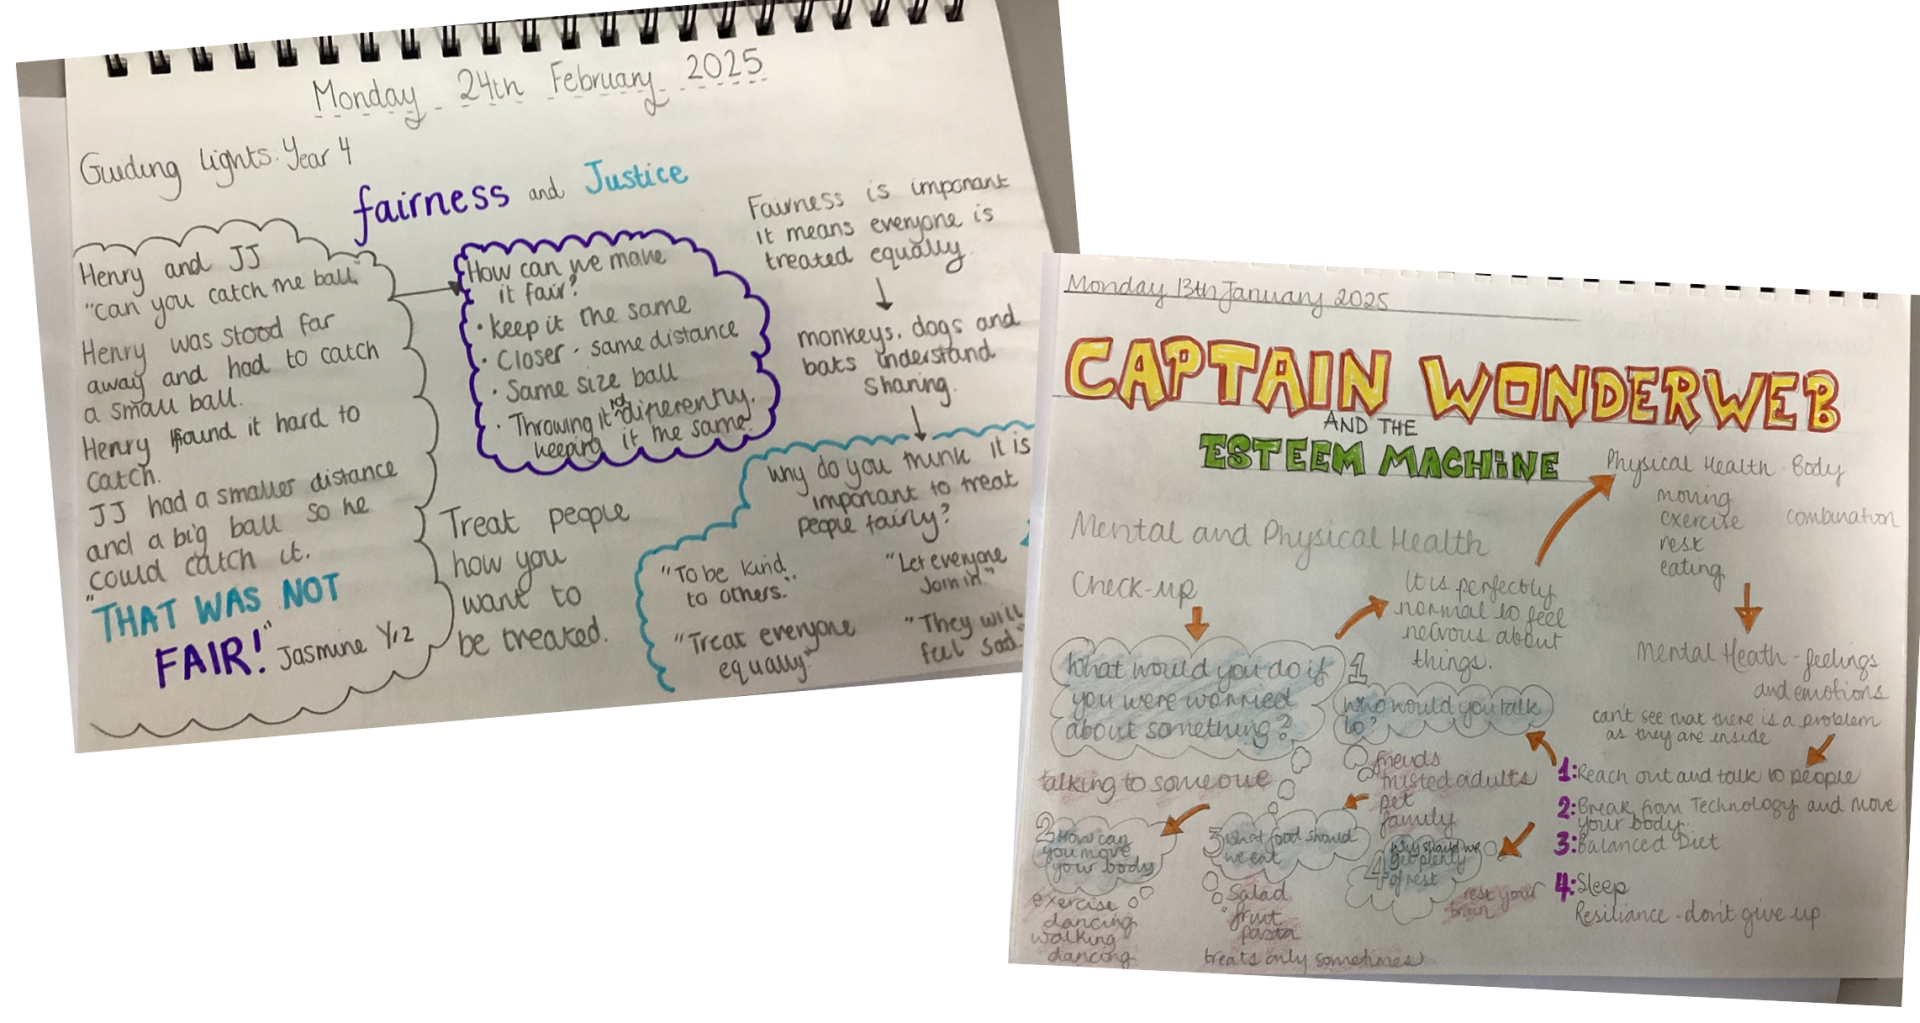 Monday 24th February 2025
Guiding Lights: Year 4
fairness and Justice
Henry and JJ
"Can you catch the ball.
Henry was stood far
away and had to catch
a small ball.
Henry found it hard to
catch.
JJ had a smaller distance
and a big ball so he
could catch it.
"THAT WAS NOT
FAIR!" Jasmine Yr2
How can we make
it fair?
• keep it the same
• Closer - same distance
• Same size ball
• Throwing it differently.
keeping it the same
Treat people
how you
want to
be treated.
Fairness is important
it means everyone is
treated equally.
monkeys, dogs and
bats understand
sharing.
why do you think it is
important to treat
people fairly?
"To be kind
to others."
"Let everyone
join in."
"Treat everyone
equally"
"They will
feel sad"
Monday 13th January 2025
CAPTAIN WONDERWEB
AND THE
ESTEEM MACHINE
Mental and Physical Health
Check-up
What would you do if
you were worried
about something?
talking to someone
It is perfectly
normal to feel
nervous about
things.
Physical Health - Body
moving
exercise combination
rest
eating
Mental Heath - feelings
and emotions
can't see that there is a problem
as they are inside
1: Reach out and talk to people
2: Break from Technology and move
your body.
3: Balanced Diet
4: Sleep
Resiliance - don't give up
1
who would you talk
to?
friends
trusted adults
pet
family
2 How can
you move
your body
exercise
dancing
walking
dancing
3 what food should
we eat
Salad
fruit
pasta
treats only sometimes
4 why should we
get plenty
of rest
rest your
brain